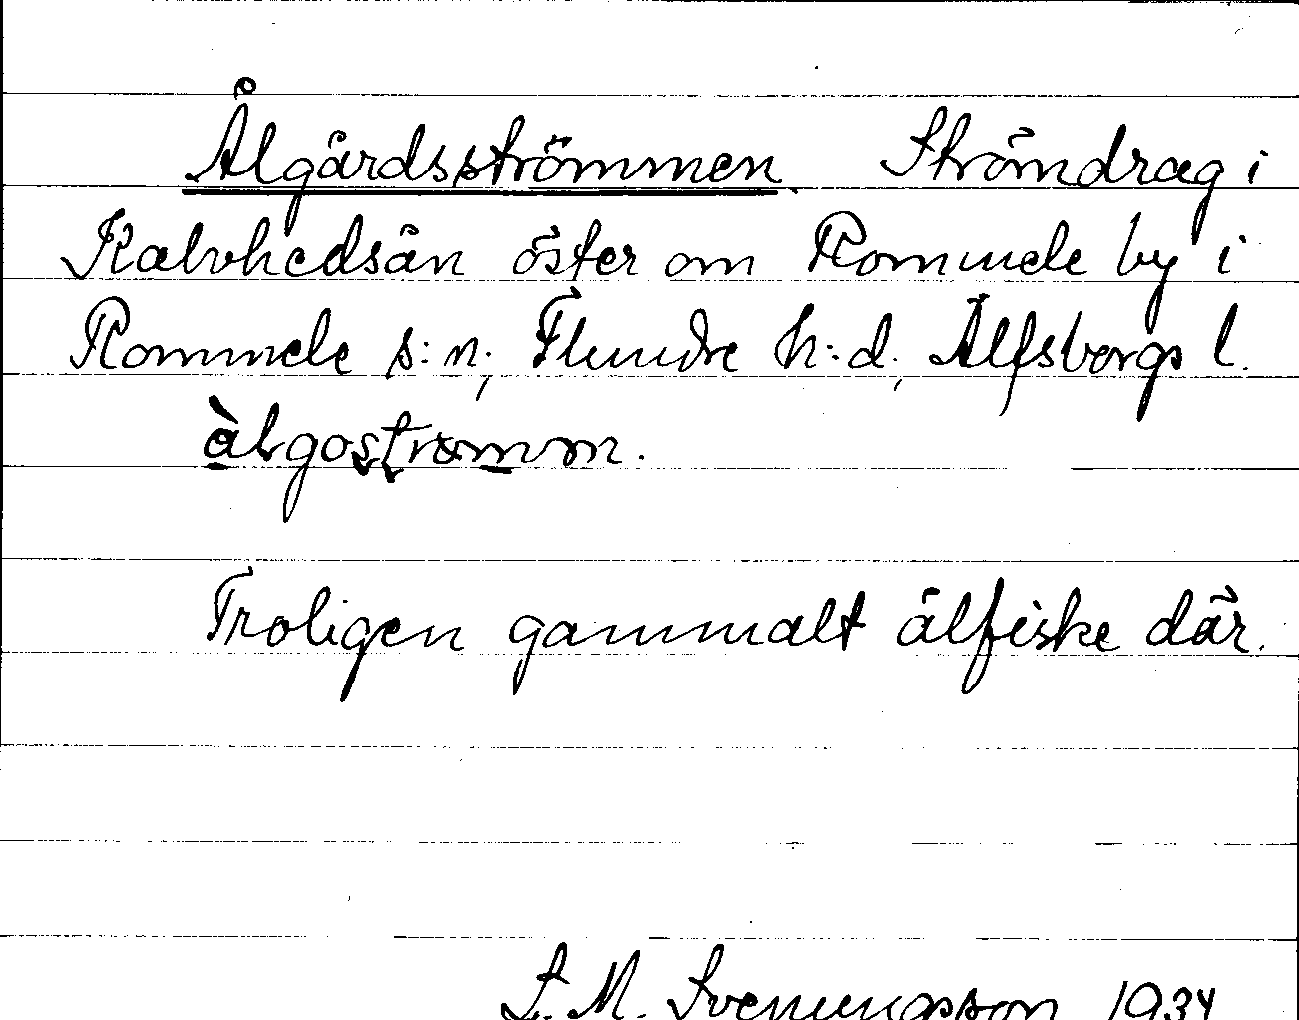 Ålgårdsströmmen. Strömdrag i
Kalvhedsån öster om Rommele by i
Rommele s:n, Flundre h:d, Älfsborgs l.
Troligen gammalt ålfiske där.
S. M. Svenungsson 1934